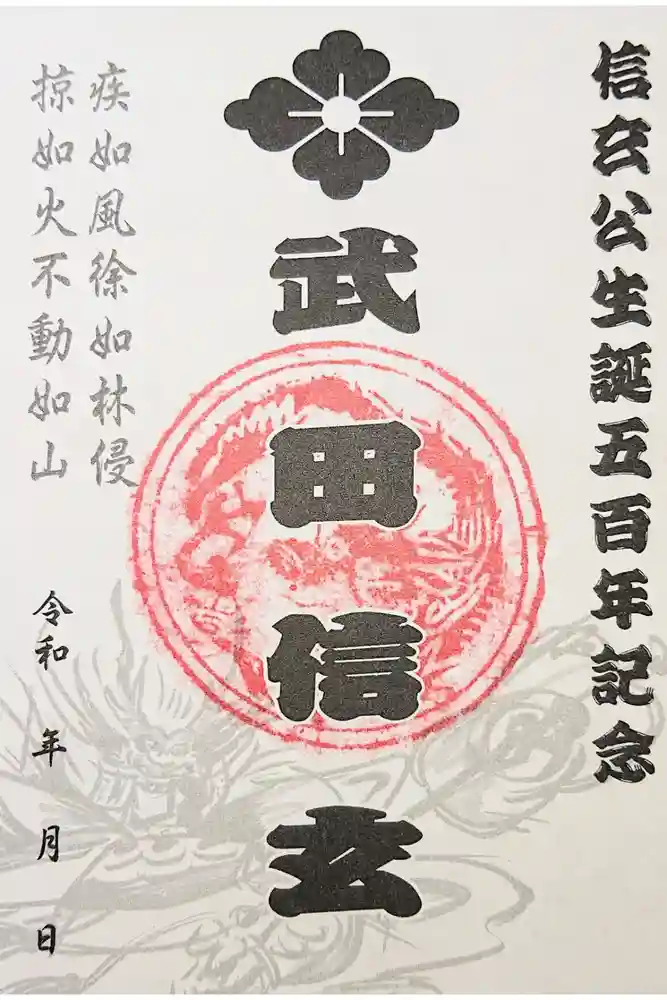 信玄公生誕五百年記念
武田信玄
疾如風徐如林侵
掠如火不動如山
令和 年 月 日